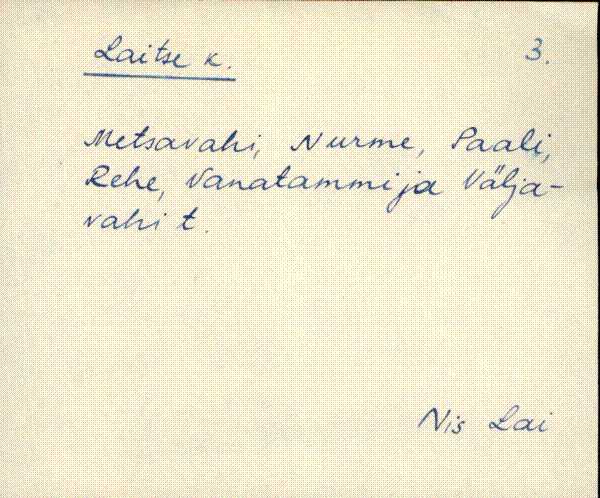 Laitse k. 3.
Metsavahi, Nurme, Paali,
Rehe, Vanatammi ja Välja-
vahi t.
Nis Lai